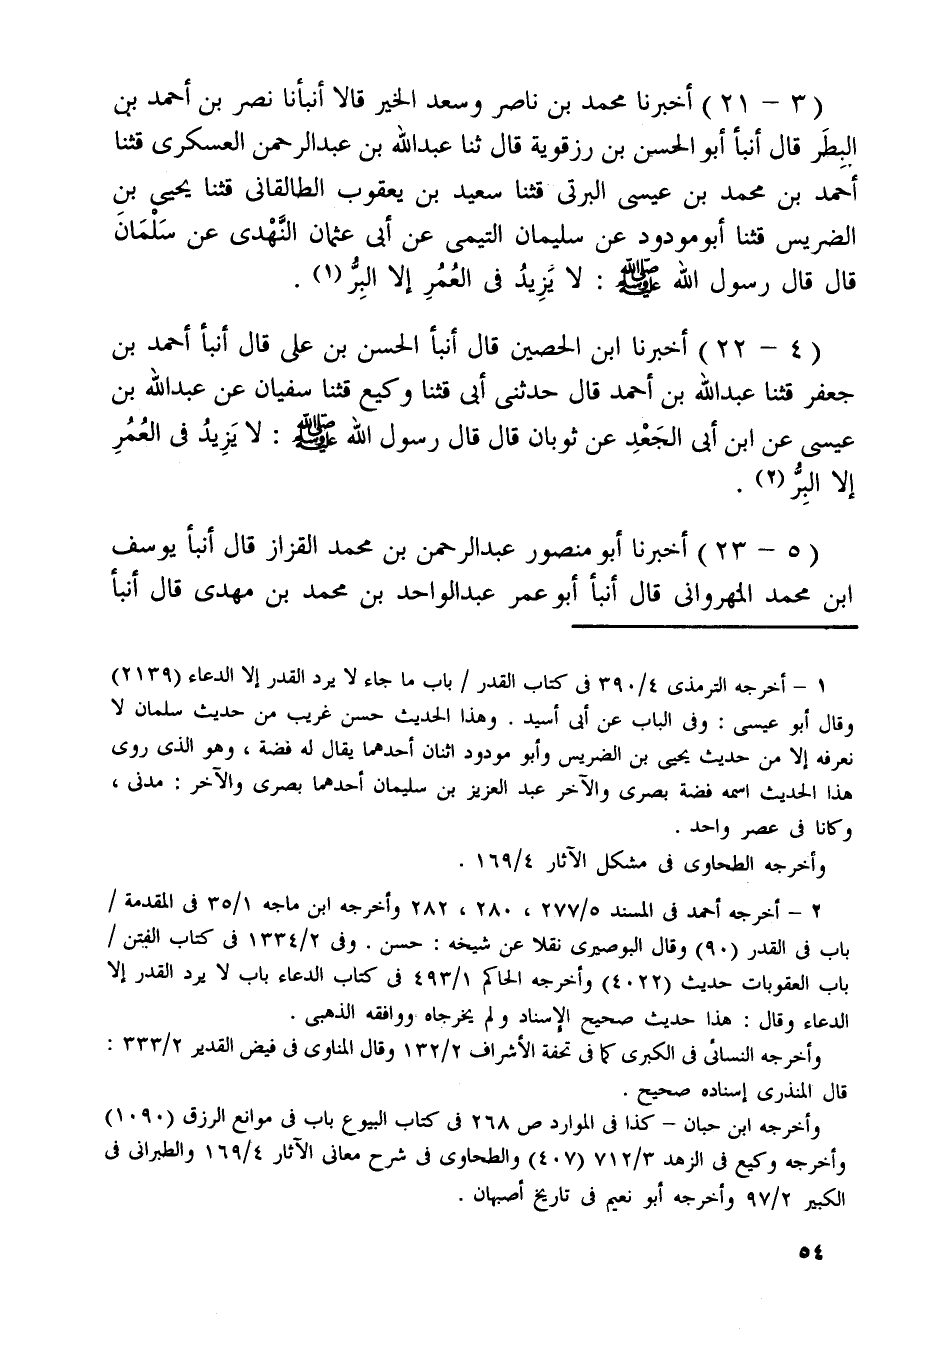 ( ٣ – ٢١ ) أخبرنا محمد بن ناصر وسعد الخير قالا أنبأنا نصر بن أحمد بن
البِطَر قال أنبأ أبو الحسن بن رزقوية قال ثنا عبدالله بن عبدالرحمن العسكرى قثنا
أحمد بن محمد بن عيسى البرتى قثنا سعيد بن يعقوب الطالقانى قثنا يحيى بن
الضريس قثنا أبومودود عن سليمان التيمى عن أبى عثمان النَّهْدى عن سَلْمَانَ
قال قال رسول الله ﷺ : لا يَزِيدُ فى العُمُرِ إلا البِرُّ (١) .
( ٤ – ٢٢ ) أخبرنا ابن الحصين قال أنبأ الحسن بن على قال أنبأ أحمد بن
جعفر قثنا عبدالله بن أحمد قال حدثنى أبى قثنا وكيع قثنا سفيان عن عبدالله بن
عيسى عن ابن أبى الجَعْدِ عن ثوبان قال قال رسول الله ﷺ : لا يَزِيدُ فى العُمُرِ
إلا البِرُّ (٢) .
( ٥ – ٢٣ ) أخبرنا أبو منصور عبدالرحمن بن محمد القزاز قال أنبأ يوسف
ابن محمد المهروانى قال أنبأ أبو عمر عبدالواحد بن محمد بن مهدى قال أنبأ
١ – أخرجه الترمذى ٣٩٠/٤ فى كتاب القدر / باب ما جاء لا يرد القدر إلا الدعاء (٢١٣٩)
وقال أبو عيسى : وفى الباب عن أبى أسيد . وهذا الحديث حسن غريب من حديث سلمان لا
نعرفه إلا من حديث يحيى بن الضريس وأبو مودود اثنان أحدهما يقال له فضة ، وهو الذى روى
هذا الحديث اسمه فضة بصرى والآخر عبد العزيز بن سليمان أحدهما بصرى والآخر : مدنى ،
وكانا فى عصر واحد .
وأخرجه الطحاوى فى مشكل الآثار ١٦٩/٤ .
٢ – أخرجه أحمد فى المسند ٢٧٧/٥ ، ٢٨٠ ، ٢٨٢ وأخرجه ابن ماجه ٣٥/١ فى المقدمة /
باب فى القدر (٩٠) وقال البوصيرى نقلا عن شيخه : حسن . وفى ١٣٣٤/٢ فى كتاب الفتن /
باب العقوبات حديث (٤٠٢٢) وأخرجه الحاكم ٤٩٣/١ فى كتاب الدعاء باب لا يرد القدر إلا
الدعاء وقال : هذا حديث صحيح الإسناد ولم يخرجاه ووافقه الذهبى .
وأخرجه النسائى فى الكبرى كما فى تحفة الأشراف ١٣٢/٢ وقال المناوى فى فيض القدير ٣٣٣/٢ :
قال المنذرى إسناده صحيح .
وأخرجه ابن حبان – كذا فى الموارد ص ٢٦٨ فى كتاب البيوع باب فى موانع الرزق (١٠٩٠)
وأخرجه وكيع فى الزهد ٧١٢/٣ (٤٠٧) والطحاوى فى شرح معانى الآثار ١٦٩/٤ والطبرانى فى
الكبير ٩٧/٢ وأخرجه أبو نعيم فى تاريخ أصبهان .
٥٤